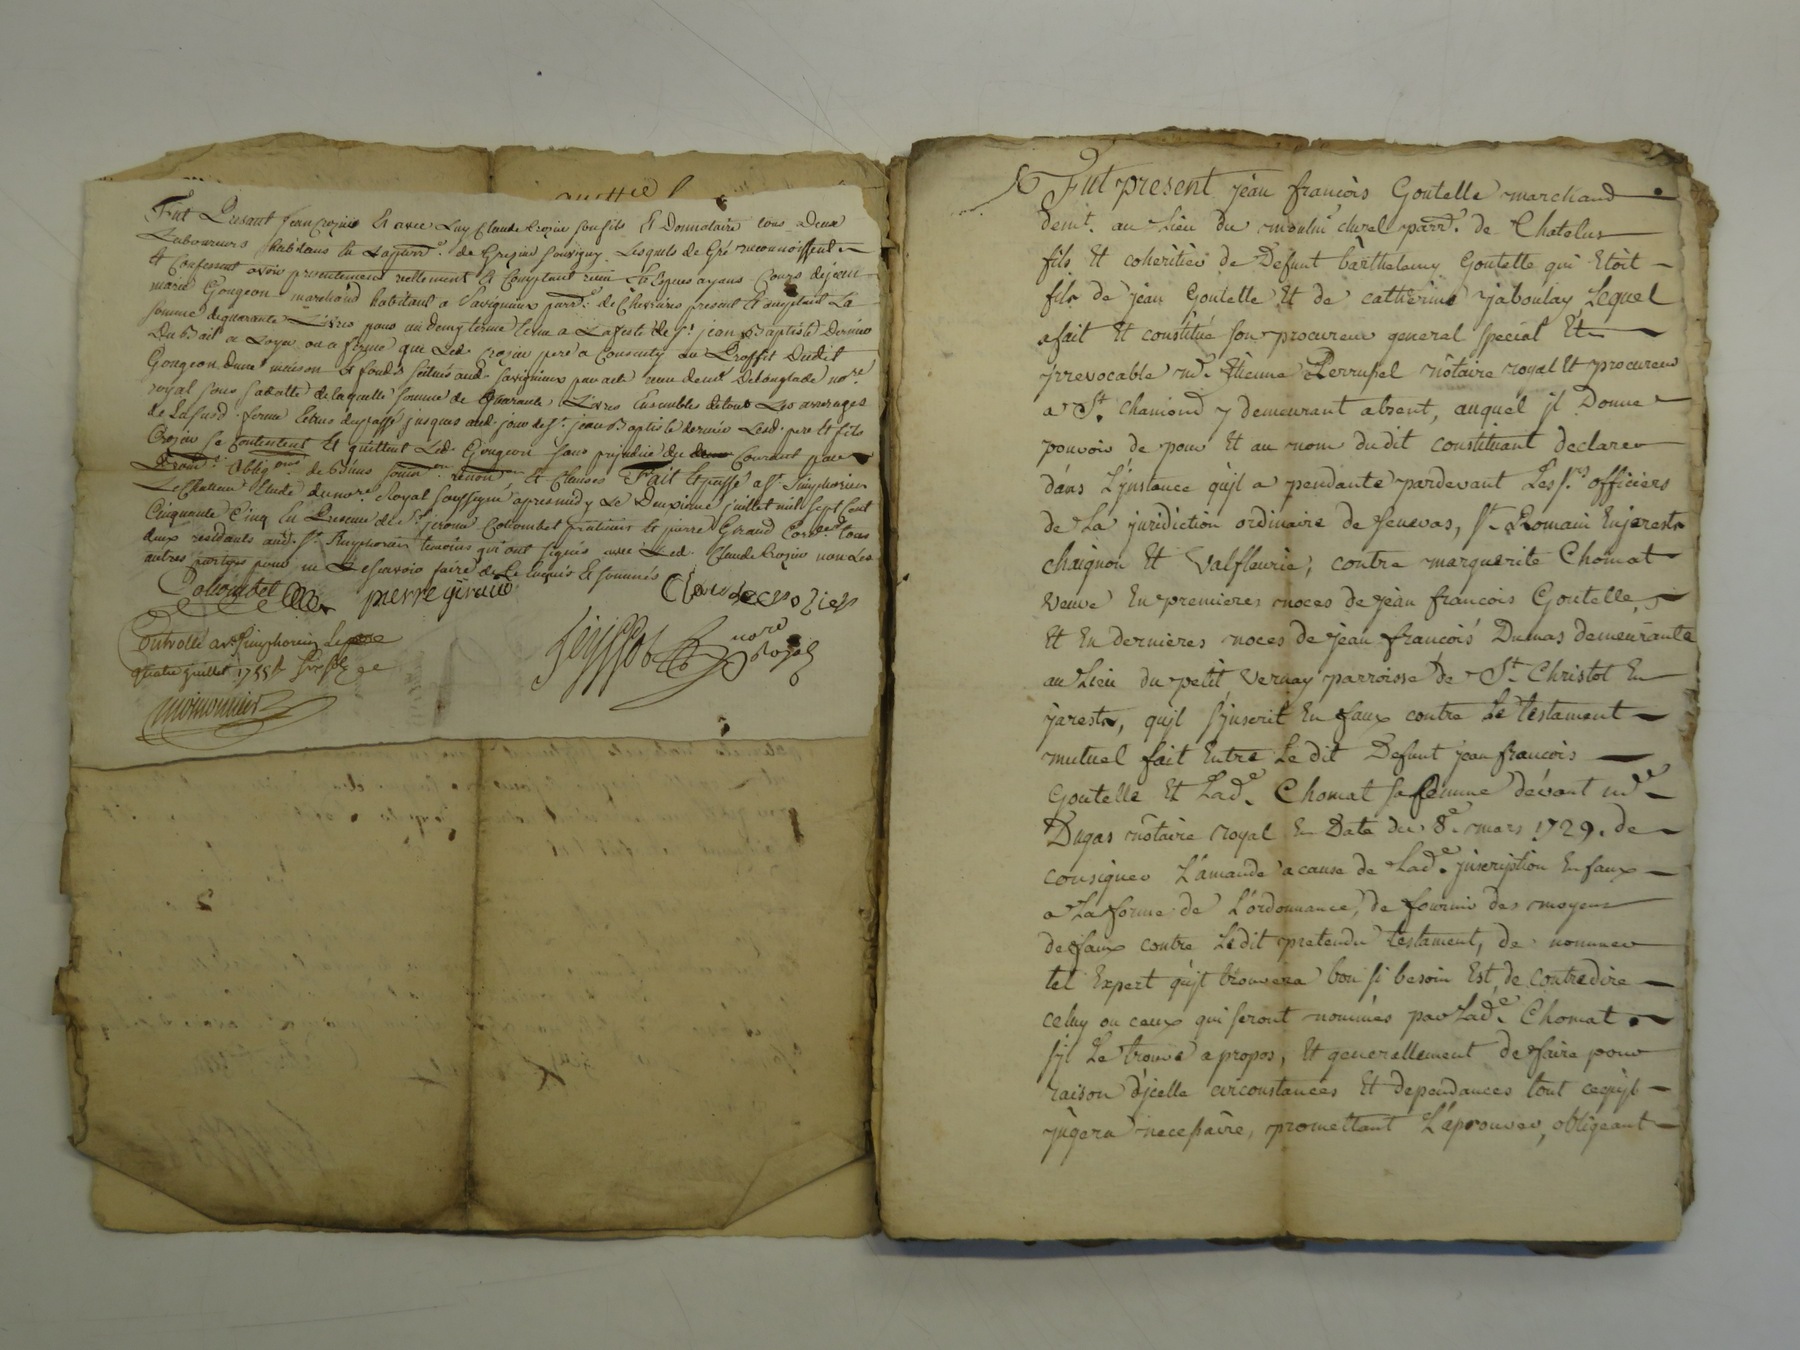 Fut Present Jean Crozier Et avec Luy Claude Crozier son fils Et Donnataire tous Deux
Laboureurs habitans En La parr.e de Grezieu Souvigny Lesquels de Gré reconnoissent
Et Confessent avoir presentement reellement Et Comptant receu En Especes ayans Cours de jean
marie Gongeon marchand habitant a Savignieux parr.e de Chevrieres present Et acceptant La
somme de quarante Livres pour un demy terme Echu a La feste de St jean Baptiste Dernier
Du Bail a Loyer ou a ferme que Led. Crozier pere a Consenty au Proffit Dudit
Gongeon D'une maison Et fonds scitués aud. Savignieux par acte receu de me Delanglade no.re
royal sous La datte de laquelle somme de quarante Livres Ensembles de tous Les arrerages
de La susd. ferme Echus du passé jusques aud. jour de St jean Baptiste dernier Lesd. pere Et fils
Crozier se contentent Et quittent Led. Gongeon sans prejudice du Courant par
Oblig.ons de biens soum.on renon.on Et Clauses Fait Et passé a St Simphorien
Le Chateau Etude du no.re Royal soussigné apres midy Le Deuxieme juillet mil sept Cent
Cinquante Cinq En Presence de Sr jerome Colombet praticien Et pierre Giraud Cord.er tous
deux residants aud. St Simphorien temoins qui ont signés avec Led. Claude Crozier non Les
autres parties pour ne Le scavoir faire de Ce Enquis Et sommés
Colombet pierre giraud Claude crozier
Controllé a St Simphorien Le
quatre juillet 1755
Teyssot no.re Royal
moinonnier
Fut present jean françois Goutelle marchand
dem.t au Lieu du moulin churel parr.e de Chatelus
fils Et coheritier de Defunt barthelemy Goutelle qui Etoit
fils de jean Goutelle Et de catherine jaboulay Lequel
a fait Et constitué son procureur general special Et
jrrevocable m.e Etienne Perrussel nôtaire royal Et procureur
a St. chamond y demeurant absent, auquel jl Donne
pouvoir de pour Et au nom dudit constituant declarer
dans L'jnstance qu'jl a pendante pardevant Les s.rs officiers
de La juridiction ordinaire de Senevas, St. Romain En jarestz
chaignon Et Valfleurie, contre marguerite Chomat
veuve En premieres noces de jean françois Goutelle,
Et En dernieres noces de jean françois Dumas demeurante
au Lieu du petit Vernay parroisse de St. Christot En
jarestz, qu'jl s'jnscrit En faux contre Le testament
mutuel fait Entre Le dit Defunt jean françois
Goutelle Et Lad.e Chomat sa femme dévant m.e
Dugas nôtaire royal En Date du 8.e mars 1729. de
consigner L'amande a cause de Lad.e jnscription En faux
a La forme de L'ordonnance, de fournir des moyens
de faux contre Ledit pretendu testament, de nommer
tel Expert qu'jl trouvera bon si besoin Est, de contredire
celuy ou ceux qui seront nommés par Lad.e Chomat.
s'jl Le trouve a propos, Et generallement de faire pour
raison d'jcelle circonstances Et dependances tout ce qu'jl
jugera necessaire, promettant L'aprouver, obligeant